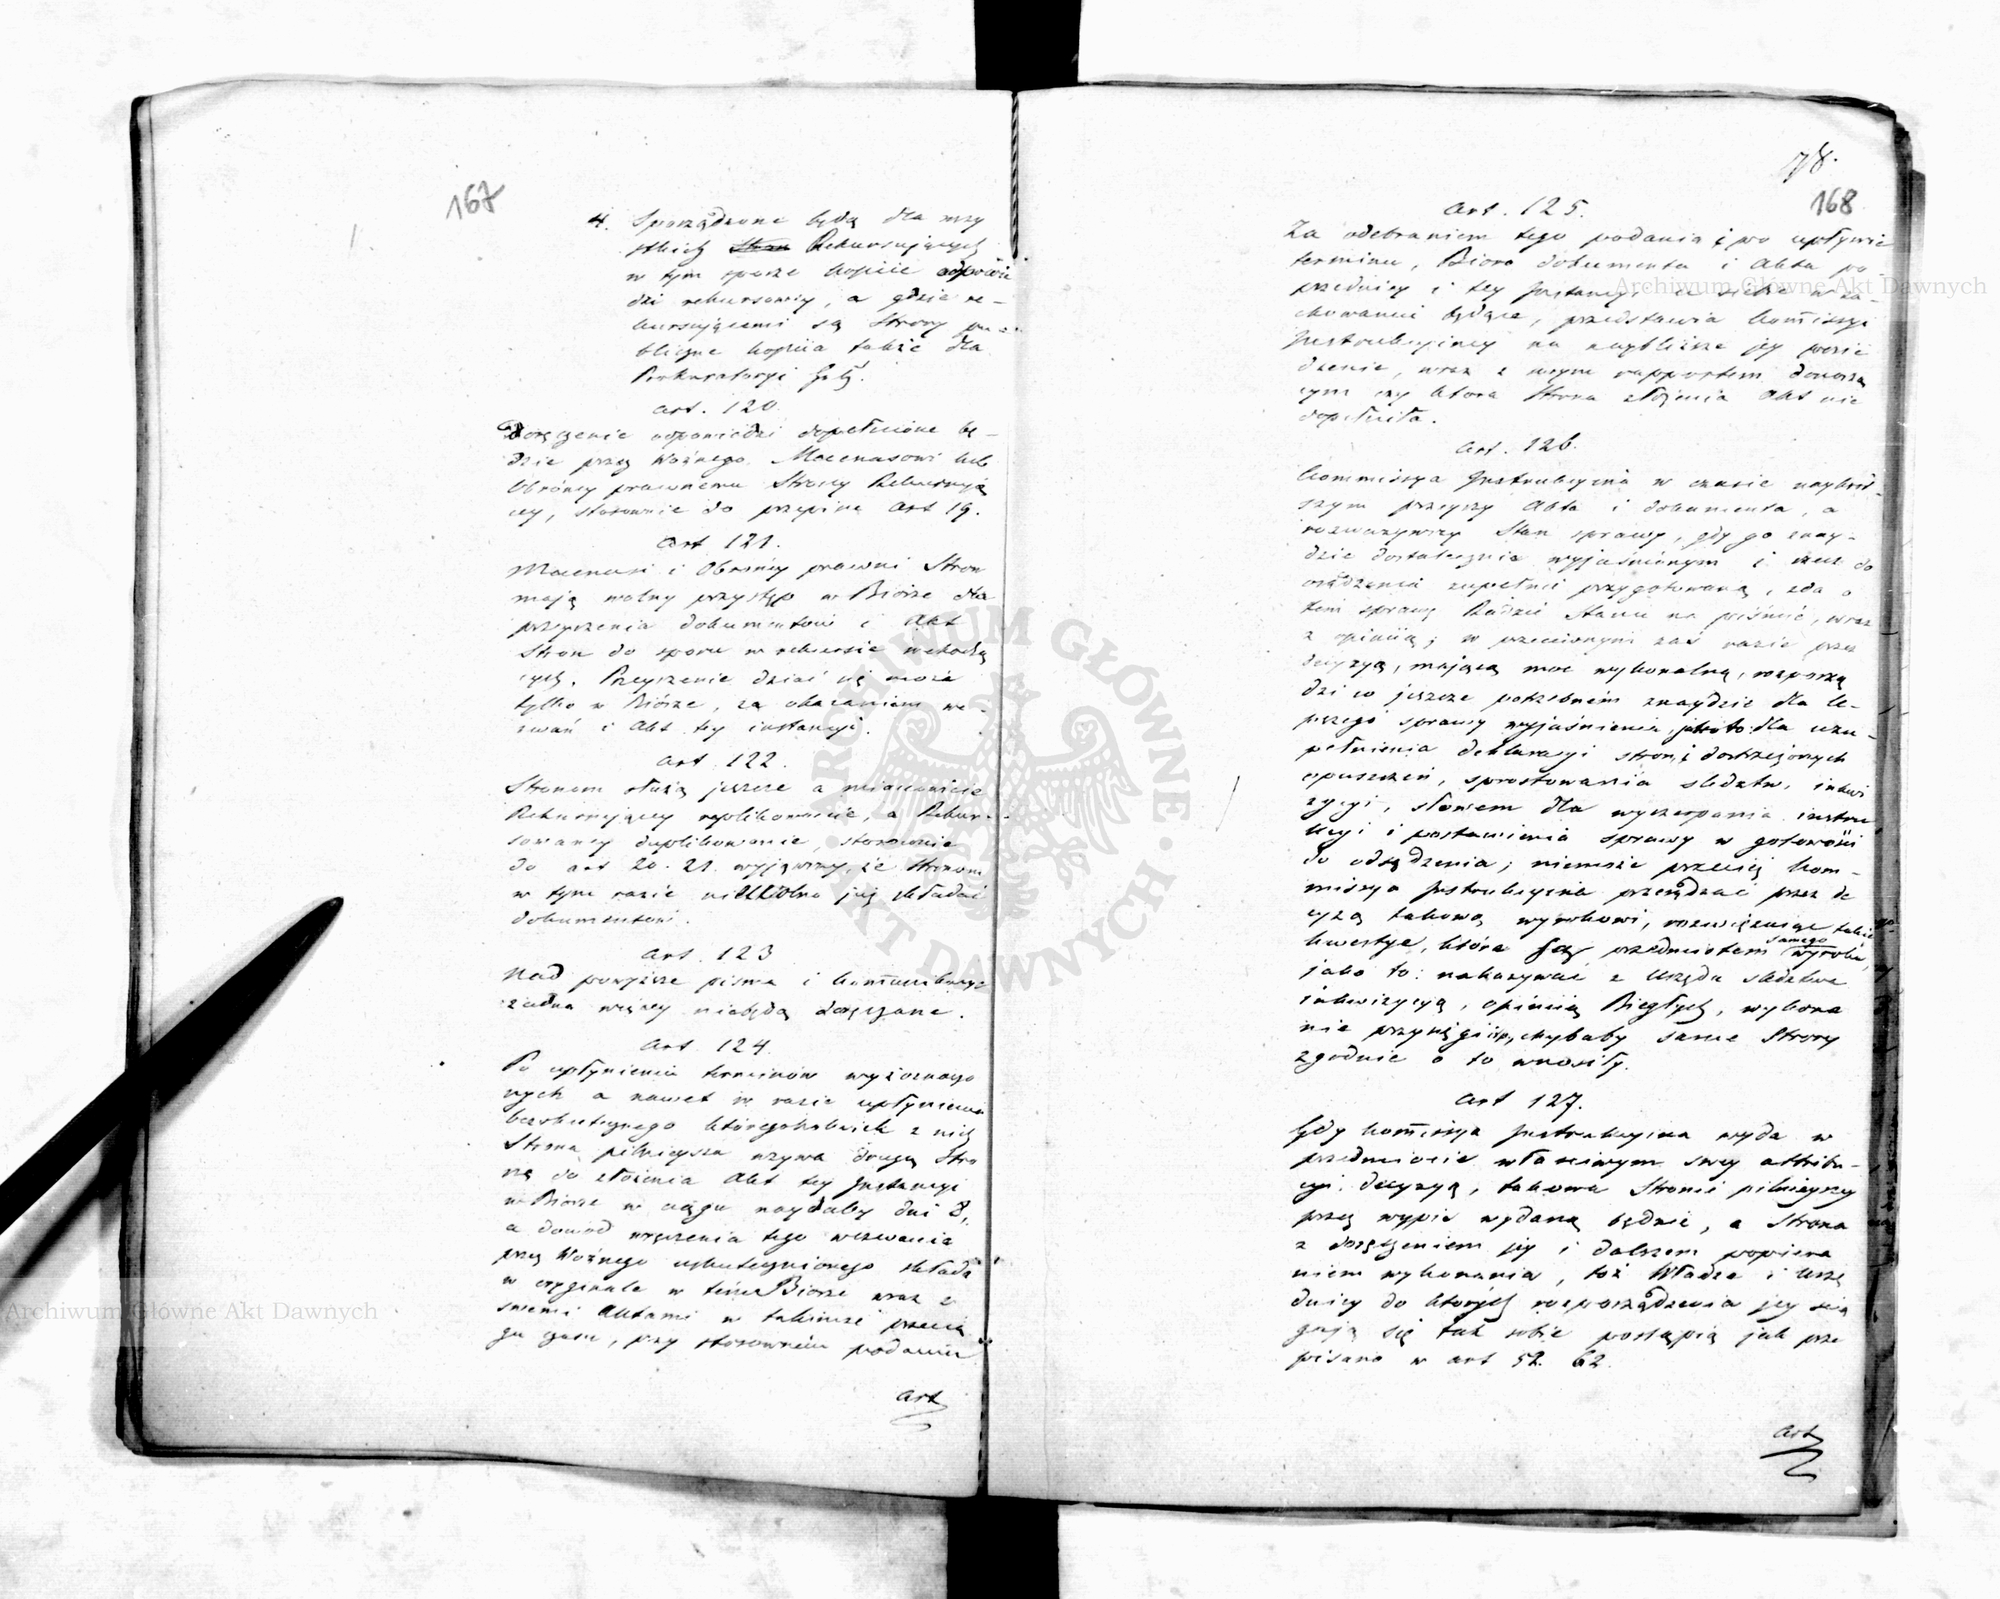 167
4. Sporządzone będą dla wszy
stkich Rekursujących
w tym sporze kopiie odpowie
dzi rekursowey, a gdzie re-
kursującemi są Strony pu-
bliczne kopiia także dla
Prokuratoryi
art. 120
Doręczenie odpowiedzi dopełnione bę-
dzie przez Woźnego Mecenasowi lub
Obrońcy prawnemu Strony Rekursują
cey, stosownie do przepisu Art 19.
Art 121.
Mecenasi i Obrońcy prawni Stron
mają wolny przystęp w Biórze dla
przeyrzenia dokumentów i Akt
Stron do sporu w rekursie wchodzą
cych. Przeyrzenie dziać się może
tylko w Biórze, za okazaniem we-
zwań i Akt tey instancyi.
Art. 122.
Stronom służą jeszcze a mianowicie
Rekursujący replikowanie, a Rekur-
sowaney duplikowanie, stosownie
do art 20. 21. wyjąwszy, że Stronom
w tym razie niewolno już składać
dokumentów.
Art. 123
Nad powyższe pisma i kom̄unikacye
żadne więcey niebędą doręczane.
Art. 124.
Po upłynieniu terminów wyżoznaczo
nych a nawet w razie upłynienia
bezskutecznego któregokolwiek z nich
Strona pilnieysza wzywa drugą Stro
nę do złożenia Akt tey Instancyi
w Biórze w ciągu naydaley dni 8,
a dowód wręczenia tego wezwania
przez Woźnego uskutecznionego składa
w oryginale w temże Biórze wraz z
swemi Aktami w takimże przecią
gu czasu, przy stosownem podaniu
Art
78.
168
Art. 125.
Za odebraniem tego podania i po upływie
terminu, Bióro dokumenta i Akta po-
przedniey i tey Instancyi u siebie w za-
chowaniu będące, przedstawia kom̄issyi
Instrukcyiney na naybliższe jey posie
dzenie, wraz z swym rapportem donoszą
cym czy która Strona złożenia Akt nie
dopełniła.
Art. 126.
Kommissya Instrukcyina w czasie naykrót-
szym przeyrzy Akta i dokumenta, a
rozważywszy Stan sprawy, gdy go znay-
dzie dostatecznie wyjaśnionym i rzecz do
osądzenia zupełnie przygotowaną, zda o
tem sprawę Radzie Stanu na piśmie, wraz
z opiniią; w przeciwnym zaś razie przez
decyzyą, mającą moc wykonalną, rozporzą
dzi co jeszcze potrzebnem znaydzie dla le-
pszego sprawy wyjaśnienia, jako to: dla uzu-
pełnienia deklaracyi stron, i dostrzeżonych
opuszczeń, sprostowania śledztw, inkwi
zycyi, słowem dla wyczerpania instru
kcyi i postawienia sprawy w gotowości
do odsądzenia; niemoże przecież kom-
missya Instrukcyina przesądzać przez de
cyzą takową wyrokowi, rozwiązując takie
kwestye, które są przedmiotem samego wyroku,
jako to: nakazywać z Urzędu śledztwa
inkwizycyą, opiniią Biegłych, wykona
nie przysięgi itp., chybaby same Strony
zgodnie o to wnosiły.
Art 127.
Gdy kom̄issya Instrukcyina wyda w
przedmiocie właściwym swey attribu-
cyi decyzyą, takowa Stronie pilnieyszey
przez wypis wydaną będzie, a Strona
z doręczeniem jey i dalszem popiera
niem wykonania, toż Władze i Urzę
dnicy do których rozporządzenia jey ścią
gają się tak sobie postąpią jak prze
pisano w art 52. 62.
Art